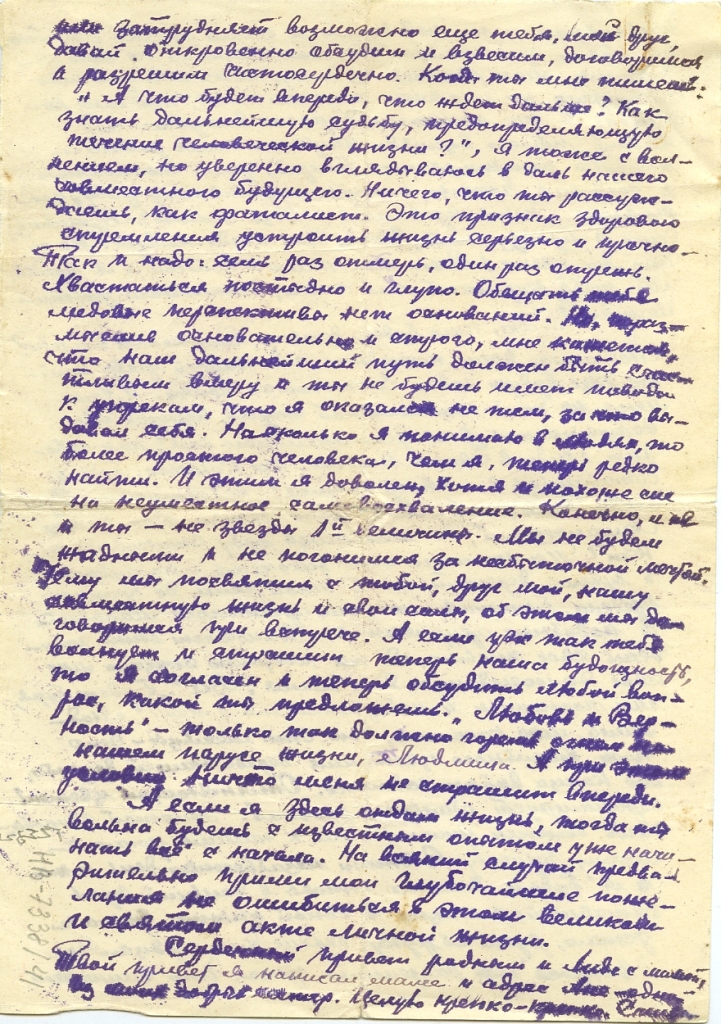 затрудняет возможно еще тебя, мой друг
давай откровенно обсудим и взвесим, договоримся
и разрешим чистосердечно. Когда ты мне пишешь:
„А что будет впереди, что ждет дальше? Как
знать дальнейшую судьбу, предопределяющую
течение человеческой жизни?", Я тоже с вол-
нением, но уверенно вглядываюсь в даль нашего
совместного будущего. Ничего, что ты рассуж-
даешь, как фаталист. Это признак здорового
стремления устроить жизнь серьезно и прочно.
Так и надо: семь раз отмерь, один раз отрежь.
Хвастаться постыдно и глупо. Обещать тебе
медовые перспективы нет оснований. Но, размыслив
основательно и строго, мне кажется,
что наш дальнейший путь должен быть счас-
тливым и ты не будешь иметь поводов
к упрекам, что я оказался не тем, за кого вы-
давал себя. Насколько я понимаю в людях, то
более простого человека, чем я, теперь редко
найти. И этим я доволен, хотя и похоже это
на неуместное самовосхваление. Конечно, и я
и ты – не звезды 1й величины. Мы не будем
жадности и не погонимся за несбыточной мечтой.
Чему мы посвятим с тобой, друг мой, нашу
совместную жизнь и свои силы, об этом мы до-
говоримся при встрече. А если уж так тебя
волнует и страшит теперь наша будущность,
то я согласен и теперь обсудить любой воп-
рос, какой ты предложешь. „Любовь и Вер-
ность" – только так должно гореть огнем на
нашем парусе жизни, Людмила. А при этом
условии ничто меня не страшит впереди.
А если я здесь отдам жизнь, тогда ты
вольна будешь с известным опытом уже начи-
нать всё с начала. На всякий случай предва-
рительно прими мои глубочайшие поже-
лания не ошибиться в этом великом
и святом акте личной жизни.
Сердечный привет родным и Лиде с мамой.
Твой привет я написал маме и адрес
Целую крепко-крепко.
НВ-7338/41